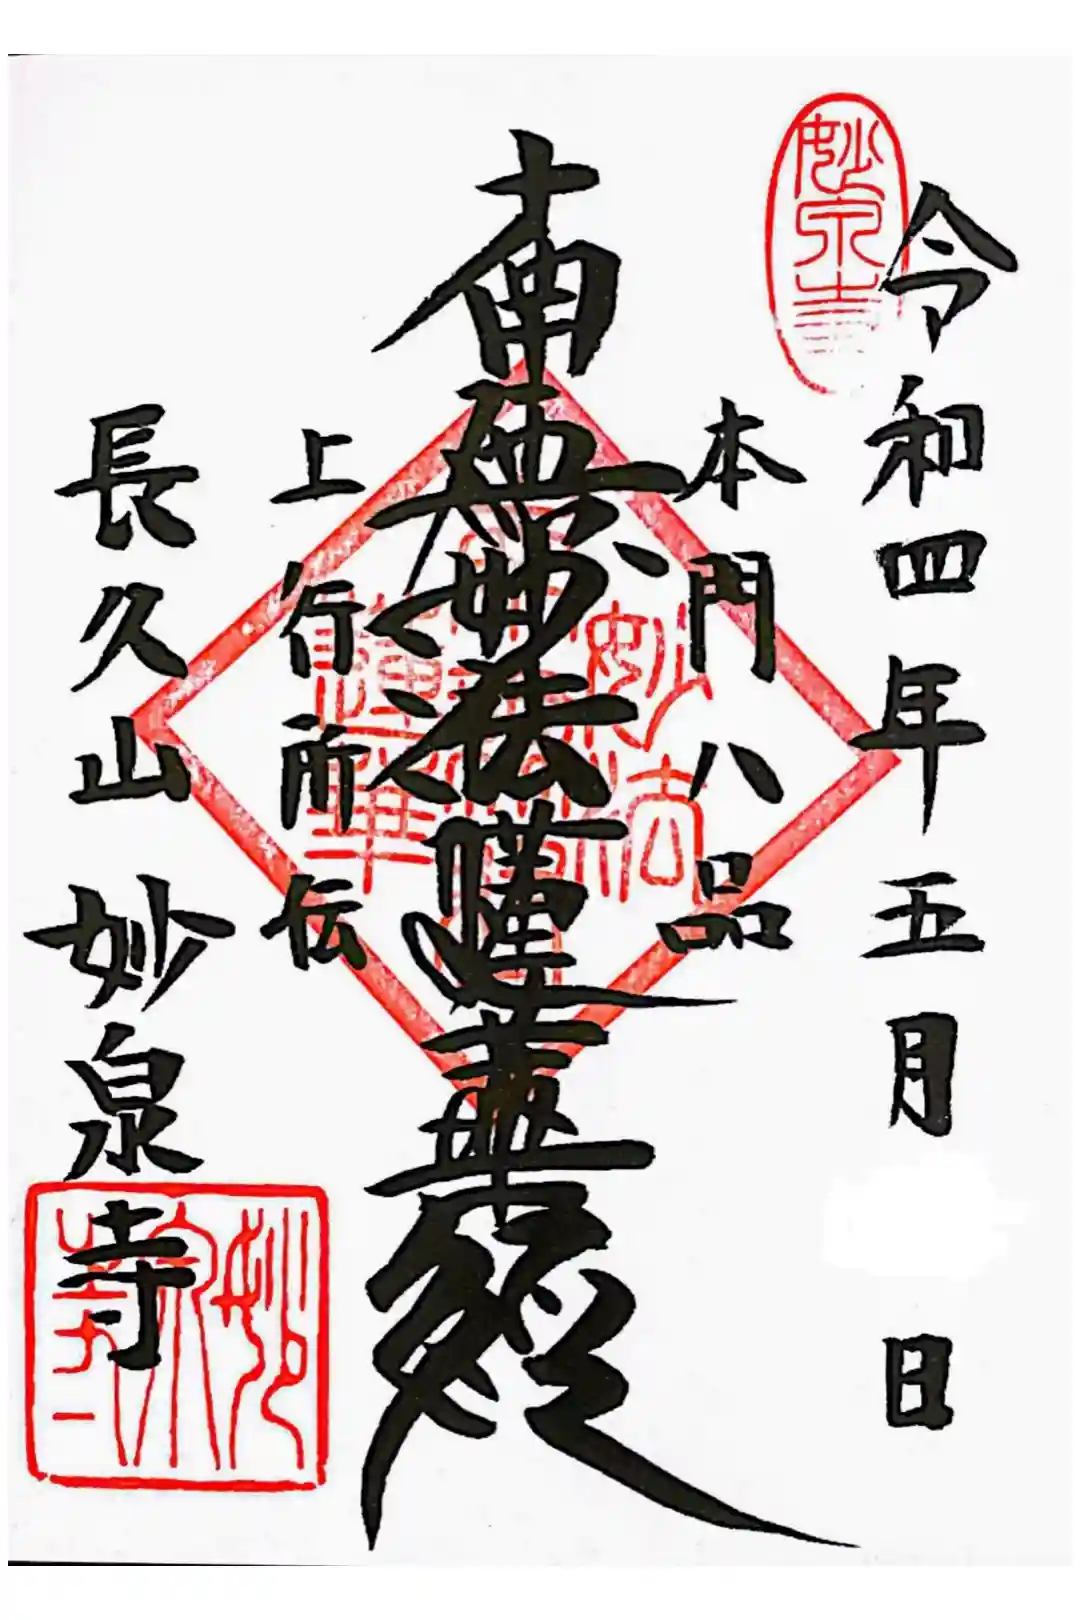 令和四年五月 日
本門八品
南無妙法蓮華経
上行所伝
長久山 妙泉寺
妙泉寺
妙法蓮華
妙泉寺